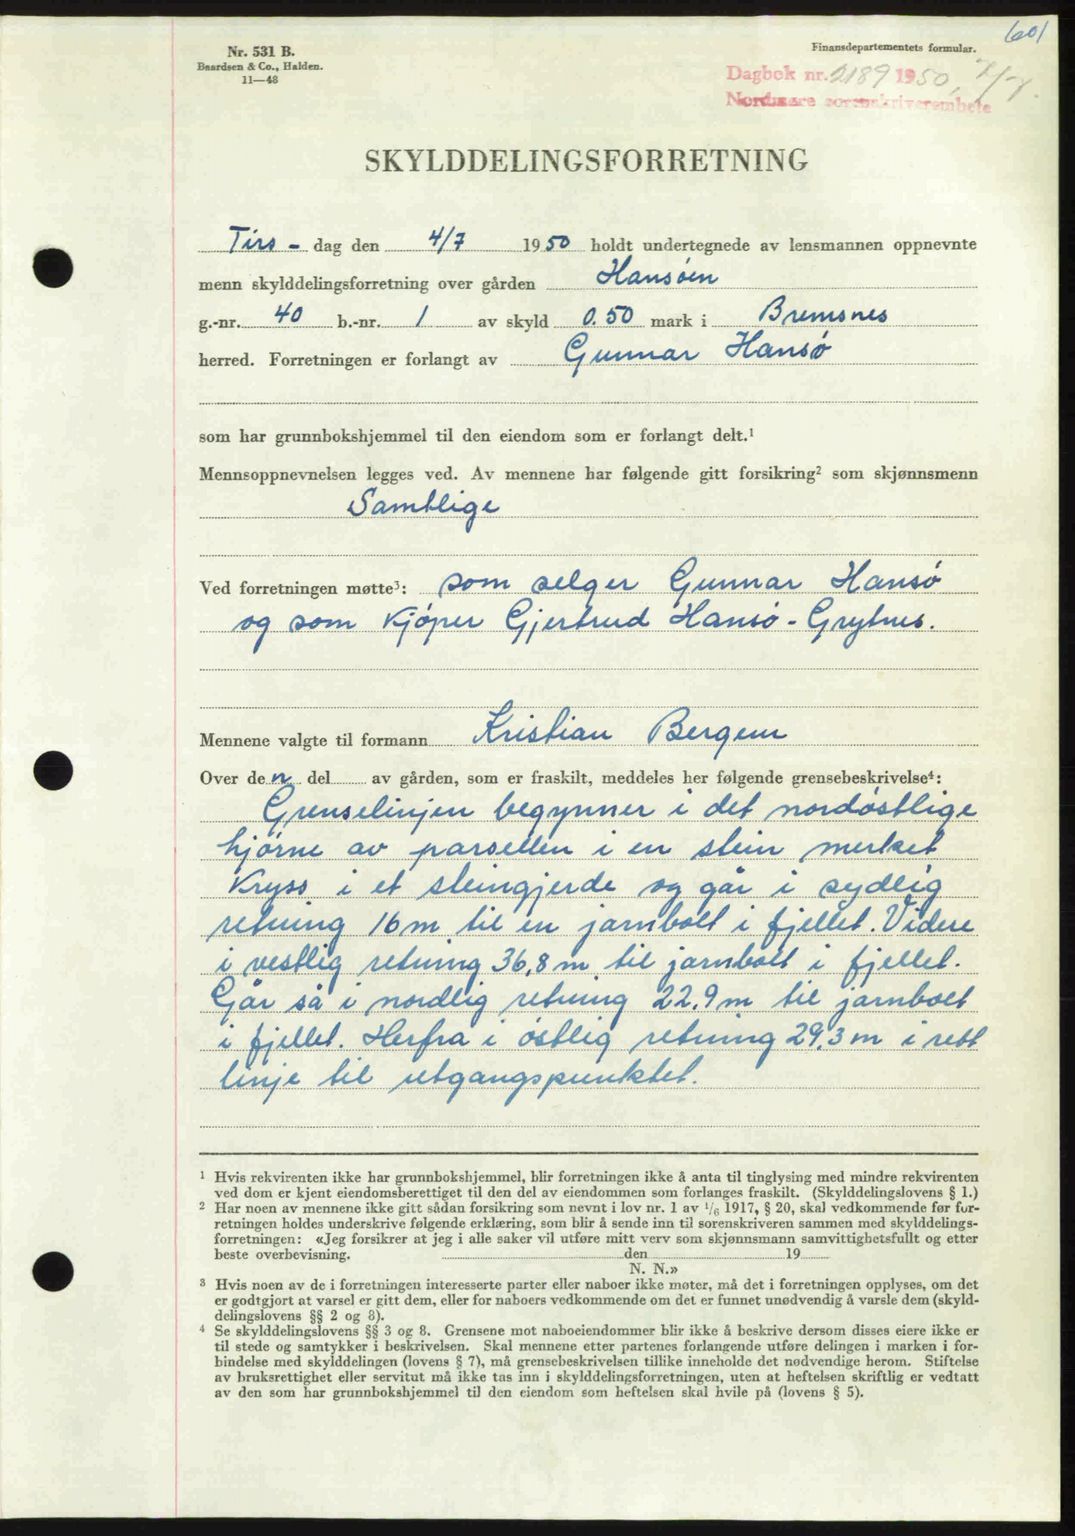 601
Nr. 531 B.
Baardsen & Co., Halden.
11—48
Finansdepartementets formular.
Dagbok nr. 2189 1950, 7/7.
Nordmøre sorenskriverembete
SKYLDDELINGSFORRETNING
Tirs - dag den 4/7 1950 holdt undertegnede av lensmannen oppnevnte
menn skylddelingsforretning over gården Hansøen
g.-nr. 40 b.-nr. 1 av skyld 0.50 mark i Bremsnes
herred. Forretningen er forlangt av Gunnar Hansø
som har grunnbokshjemmel til den eiendom som er forlangt delt.¹
Mennsoppnevnelsen legges ved. Av mennene har følgende gitt forsikring² som skjønnsmenn
Samtlige
Ved forretningen møtte³: som selger Gunnar Hansø
og som kjøper Gjertrud Hansø - Grytnes.
Mennene valgte til formann Kristian Bergem
Over den del av gården, som er fraskilt, meddeles her følgende grensebeskrivelse⁴:
Grenselinjen begynner i det nordøstlige
hjørne av parsellen i en stein merket
Kryss i et steingjerde og går i sydlig
retning 16 m til en jarnbolt i fjellet. Videre
i vestlig retning 36,8 m til jarnbolt i fjellet.
Går så i nordlig retning 22,9 m til jarnbolt
i fjellet. Herfra i østlig retning 29,3 m i rett
linje til utgangspunktet.
¹ Hvis rekvirenten ikke har grunnbokshjemmel, blir forretningen ikke å anta til tinglysing med mindre rekvirenten
ved dom er kjent eiendomsberettiget til den del av eiendommen som forlanges fraskilt. (Skylddelingslovens § 1.)
² Har noen av mennene ikke gitt sådan forsikring som nevnt i lov nr. 1 av 1/6 1917, § 20, skal vedkommende før for-
retningen holdes underskrive følgende erklæring, som blir å sende inn til sorenskriveren sammen med skylddelings-
forretningen: «Jeg forsikrer at jeg i alle saker vil utføre mitt verv som skjønnsmann samvittighetsfullt og etter
beste overbevisning. den 19
N. N.»
³ Hvis noen av de i forretningen interesserte parter eller naboer ikke møter, må det i forretningen opplyses, om det
er godtgjort at varsel er gitt dem, eller for naboers vedkommende om det er funnet unødvendig å varsle dem (skyld-
delingslovens §§ 2 og 3).
⁴ Se skylddelingslovens §§ 3 og 8. Grensene mot naboeiendommer blir ikke å beskrive dersom disses eiere ikke er
til stede og samtykker i beskrivelsen. Skal mennene etter partenes forlangende utføre delingen i marken i for-
bindelse med skylddelingen (lovens § 7), må grensebeskrivelsen tillike inneholde det nødvendige herom. Stiftelse
av bruksrettighet eller servitut må ikke tas inn i skylddelingsforretningen, uten at heftelsen skriftlig er vedtatt
av den som har grunnbokshjemmel til den eiendom som heftelsen skal hvile på (lovens § 5).